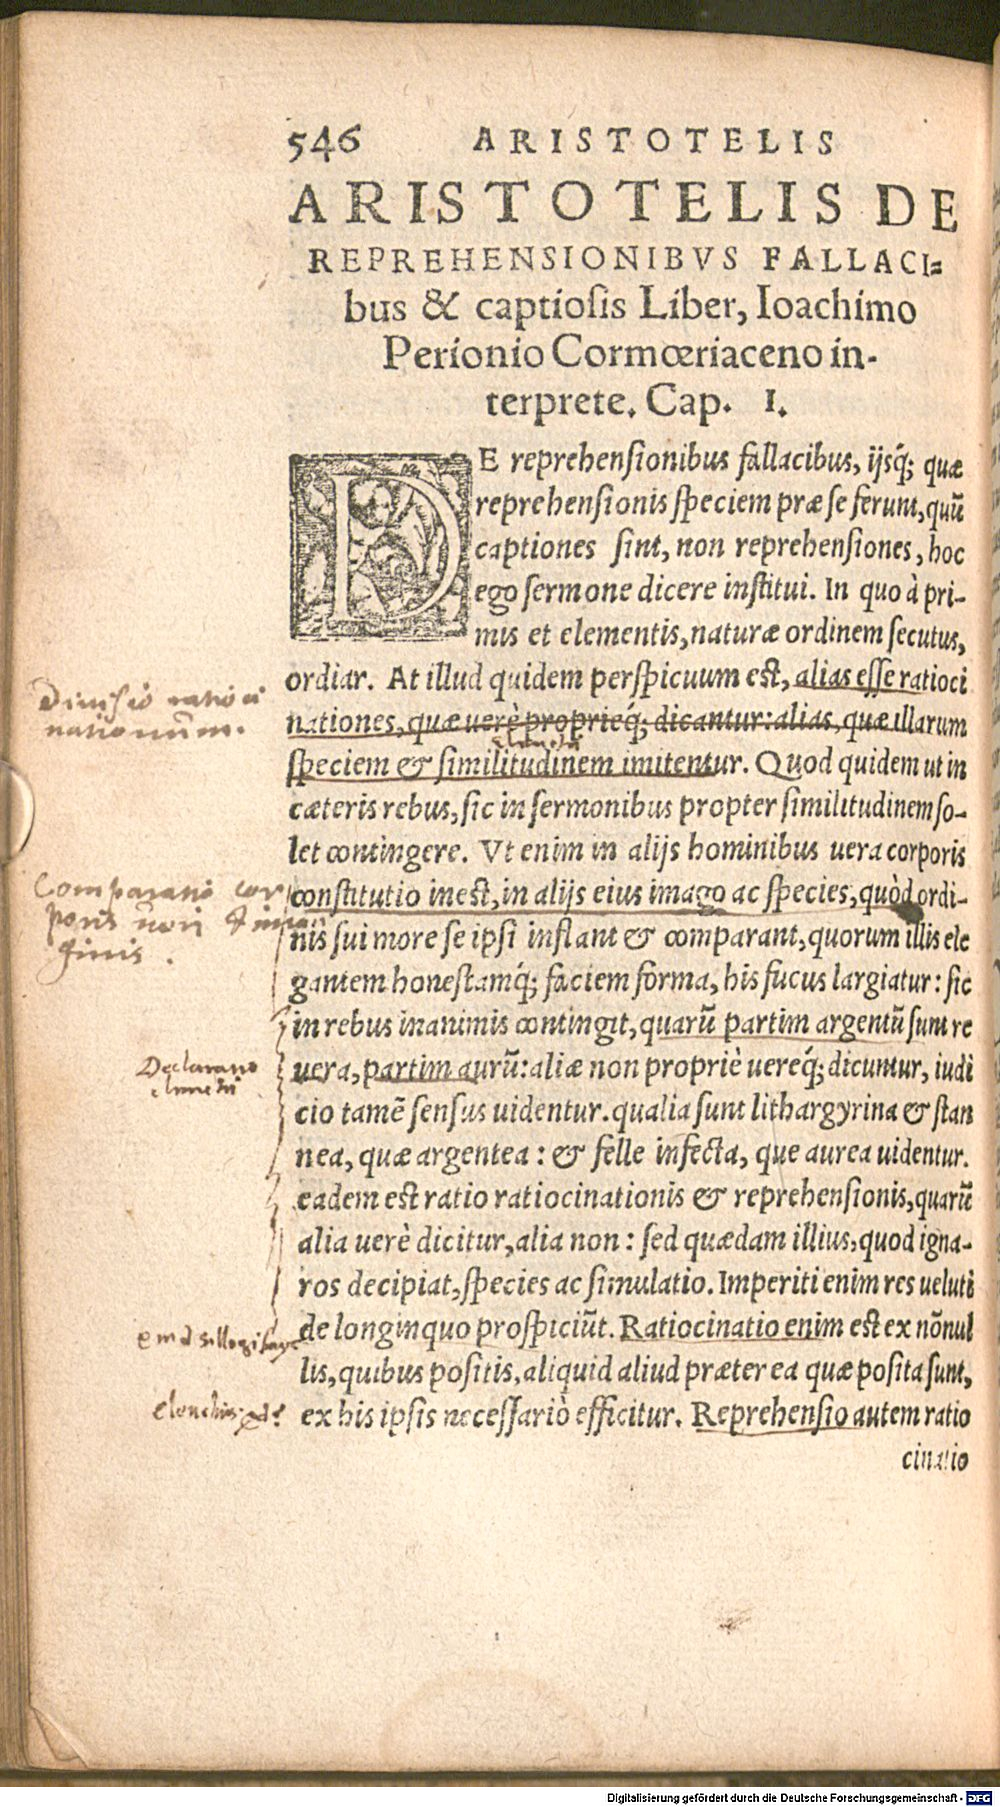 546 ARISTOTELIS
ARISTOTELIS DE
REPREHENSIONIBVS FALLACI=
bus & captiosis Liber, Ioachimo
Perionio Cormœriaceno in-
terprete. Cap. I.
DE reprehensionibus fallacibus, ijsq́; quæ
reprehensionis speciem præ se ferunt, quū
captiones sint, non reprehensiones, hoc
ego sermone dicere institui. In quo à pri-
mis et elementis, naturæ ordinem secutus,
ordiar. At illud quidem perspicuum est, alias esse ratioci
nationes, quæ uerè proprieq́; dicantur: alias, quæ illarum
speciem & similitudinem imitentur. Quod quidem ut in
cæteris rebus, sic in sermonibus propter similitudinem so-
let contingere. Vt enim in alijs hominibus uera corporis
constitutio inest, in alijs eius imago ac species, quòd ordi-
nis sui more se ipsi inflant & comparant, quorum illis ele
gantem honestamq́; faciem forma, his fucus largiatur: sic
in rebus inanimis contingit, quarū partim argentū sunt re
uera, partim aurū: aliæ non propriè uereq́; dicuntur, iudi
cio tamē sensus uidentur. qualia sunt lithargyrina & stan
nea, quæ argentea: & felle infecta, que aurea uidentur.
eadem est ratio ratiocinationis & reprehensionis, quarū
alia uerè dicitur, alia non: sed quædam illius, quod igna-
ros decipiat, species ac simulatio. Imperiti enim res ueluti
de longinquo prospiciūt. Ratiocinatio enim est ex nōnul
lis, quibus positis, aliquid aliud præter ea quæ posita sunt,
ex his ipsis necessariò efficitur. Reprehensio autem ratio
cinatio
Diuisio ratioci
nationum.
Comparatio cor
poris
Declaratio
Digitalisierung gefördert durch die Deutsche Forschungsgemeinschaft - DFG